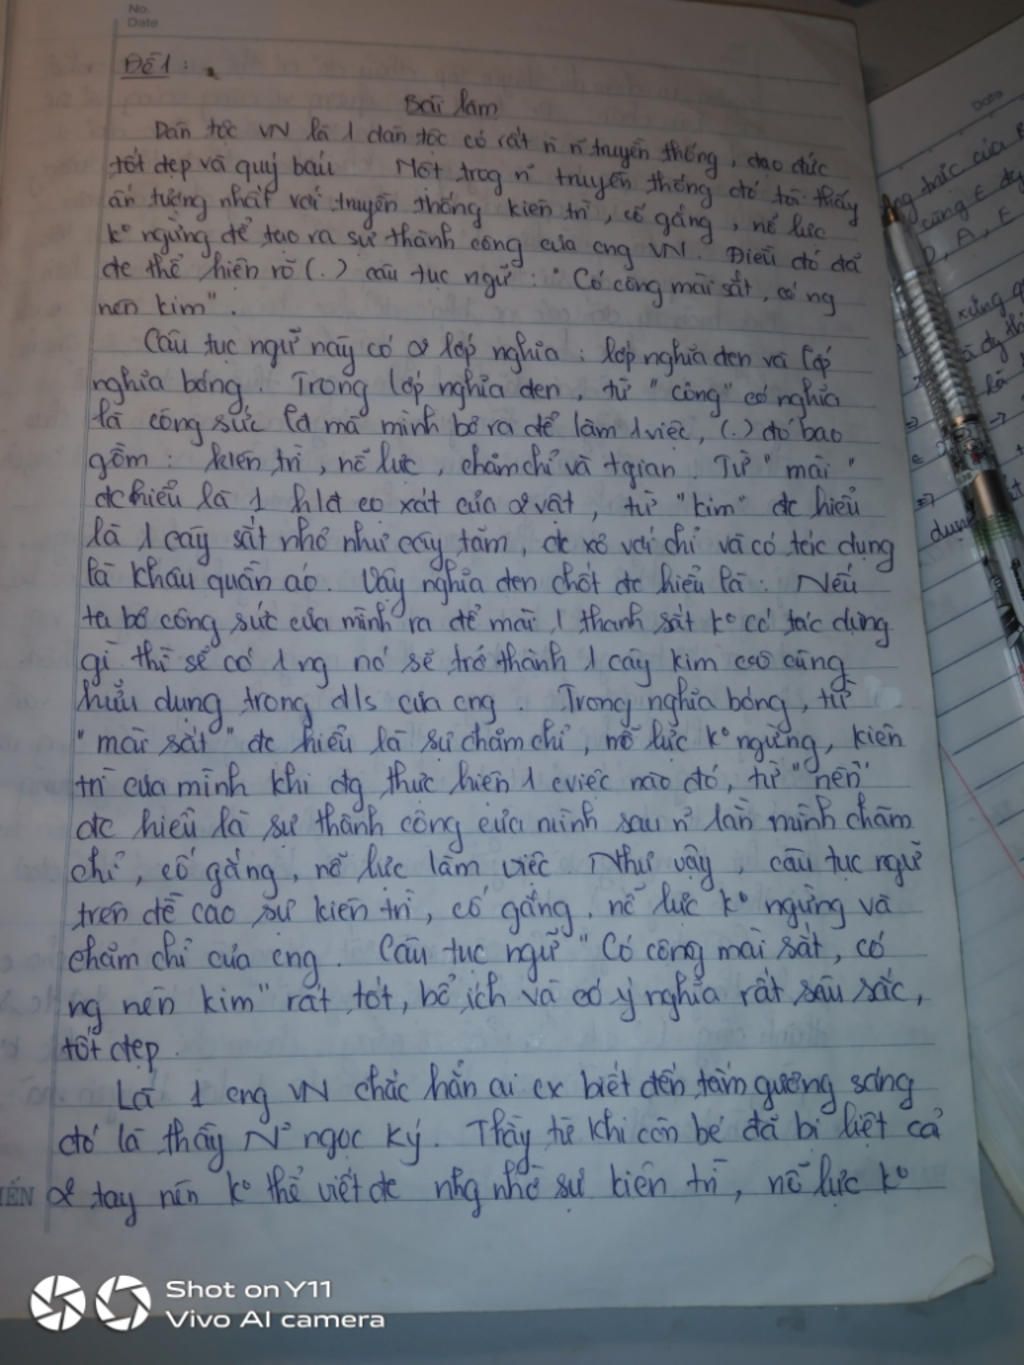 No.
Date
Đề 1 :
Bài làm
Dân tộc VN là 1 dân tộc có rất n̄ n̄ truyền thống, đạo đức
tốt đẹp và quý báu Một trog n̄ truyền thống đó tôi thấy
ấn tượng nhất với truyền thống kiên trì, cố gắng, nỗ lực
kº ngừng để tạo ra sự thành công của cng VN. Điều đó đã
đc thể hiện rõ (.) câu tục ngữ : "Có công mài sắt, có ng
nên kim".
Câu tục ngữ này có 2 lớp nghĩa : lớp nghĩa đen và lớp
nghĩa bóng. Trong lớp nghĩa đen, từ "công" có nghĩa
là công sức mà mình bỏ ra để làm 1 việc, (.) đó bao
gồm : kiên trì, nỗ lực, chăm chỉ và tgian. Từ "mài"
đc hiểu là 1 hđ cọ xát của 2 vật, từ "kim" đc hiểu
là 1 cây sắt nhỏ như cây tăm, đc xỏ với chỉ và có tác dụng
là khâu quần áo. Vậy nghĩa đen chốt đc hiểu là : Nếu
ta bỏ công sức của mình ra để mài 1 thanh sắt kº có tác dụng
gì thì sẽ có 1 ng nó sẽ trở thành 1 cây kim vô cùng
hữu dụng trong đ/s của cng. Trong nghĩa bóng, từ
"mài sắt" đc hiểu là sự chăm chỉ, nỗ lực kº ngừng, kiên
trì của mình khi đg thực hiện 1 cviệc nào đó, từ "nên"
đc hiểu là sự thành công của mình sau n̄ lần mình chăm
chỉ, cố gắng, nỗ lực làm việc. Như vậy, câu tục ngữ
trên đề cao sự kiên trì, cố gắng, nỗ lực kº ngừng và
chăm chỉ của cng. Câu tục ngữ "Có công mài sắt, có
ng nên kim" rất tốt, bổ ích và có ý nghĩa rất sâu sắc,
tốt đẹp.
Là 1 cng VN chắc hẳn ai cx biết đến tấm gương sáng
đó là thầy Nº ngọc Ký. Thầy từ khi còn bé đã bị liệt cả
2 tay nên kº thể viết đc nhg nhờ sự kiên trì, nỗ lực kº
Shot on Y11
Vivo AI camera